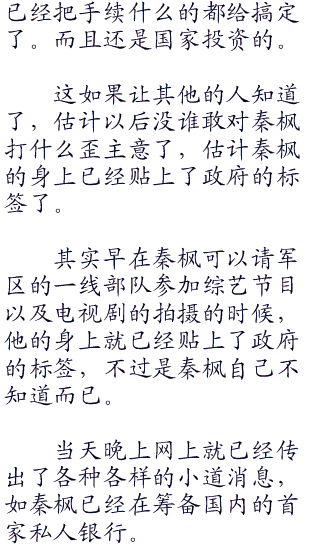 已经把手续什么的都给搞定
了。而且还是国家投资的。
这如果让其他的人知道
了，估计以后没谁敢对秦枫
打什么歪主意了，估计秦枫
的身上已经贴上了政府的标
签了。
其实早在秦枫可以请军
区的一线部队参加综艺节目
以及电视剧的拍摄的时候，
他的身上就已经贴上了政府
的标签，不过是秦枫自己不
知道而已。
当天晚上网上就已经传
出了各种各样的小道消息，
如秦枫已经在筹备国内的首
家私人银行。